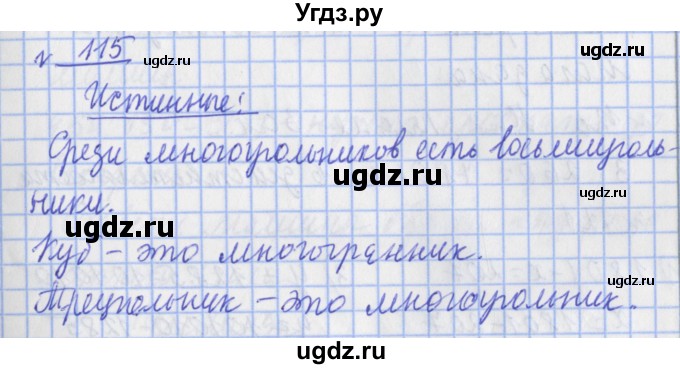 Угдз.ру
ugdz.ru ugdz.ru
№ 115
ugdz.ru
Истинные:
Среди многоугольников есть восьмиуголь-
ugdz.ru ugdz.ru
ники.
Куб – это многогранник.
ugdz.ru
Треугольник – это многоугольник.
ugdz.ru
ugdz.ru